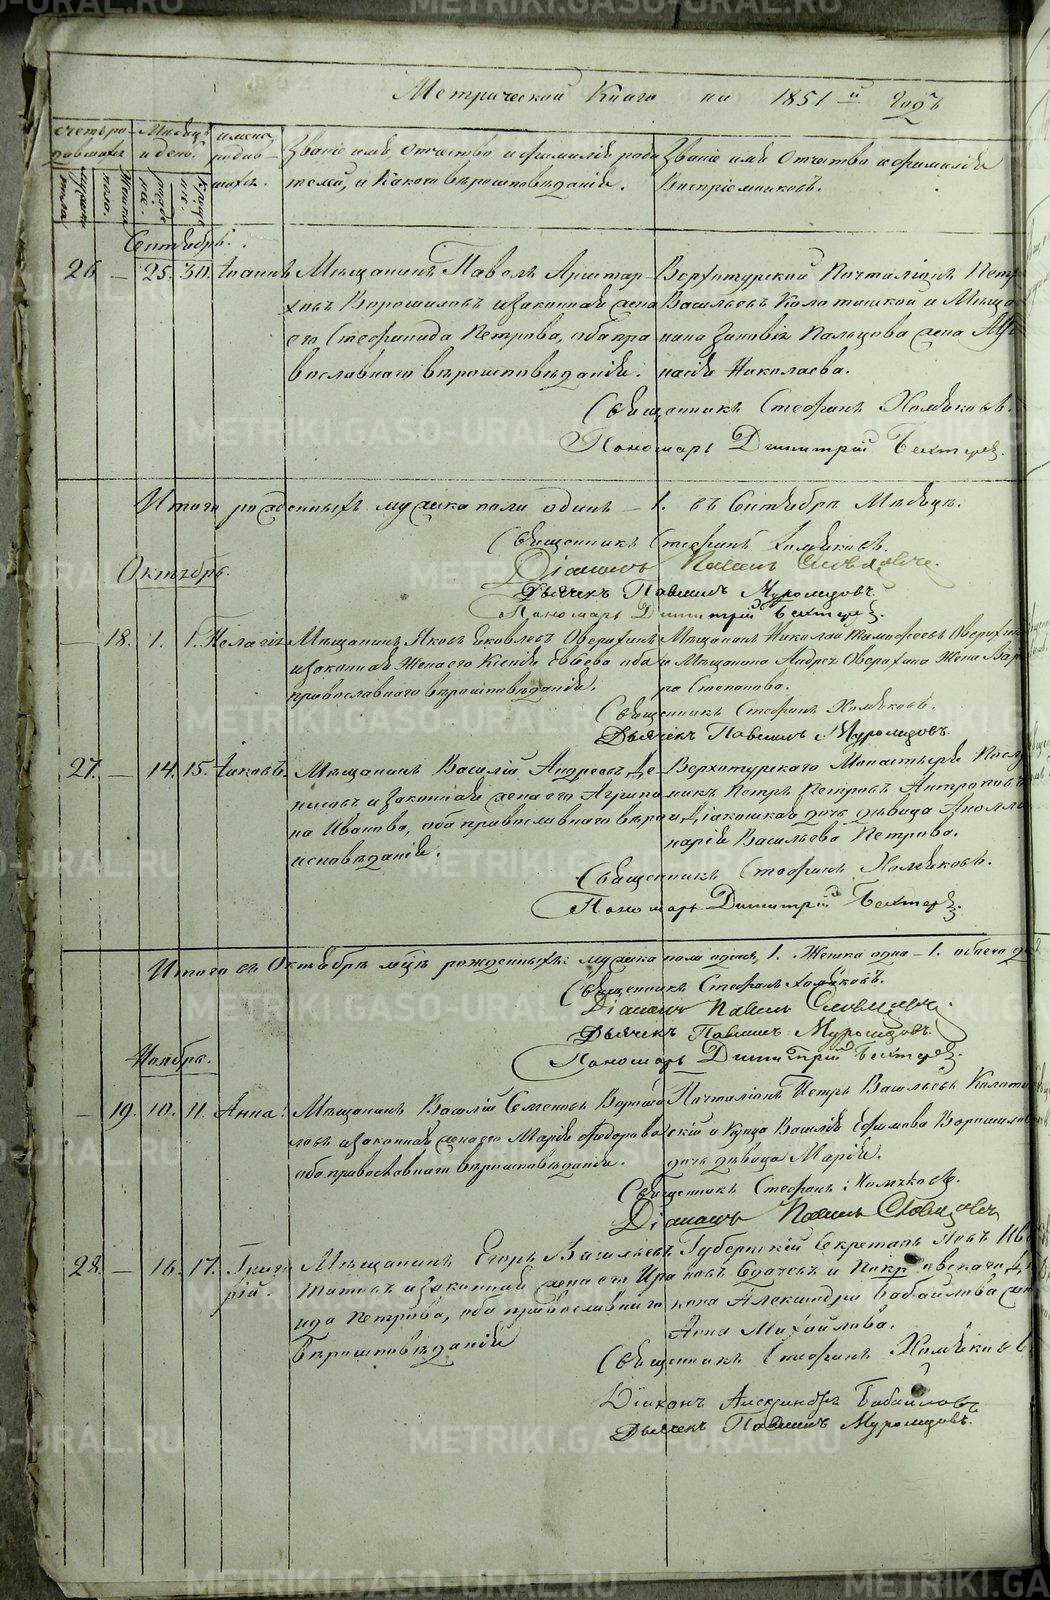 Метрической Книги на 1851 й годъ
Счетъ родившихся
Месяцъ и день
имена родившихся.
Званіе имя отчество и фамилія родителей, и какого вѣроисповѣданія.
Званіе имя отчество и фамилія Воспріемниковъ.
мужеска пола.
женска пола.
рожденія.
крещенія.
Сентябрь.
26 — 25. 30. Іоаннъ
Мѣщанинъ Павелъ Аристар-
ховъ Ворошиловъ и законная жена
его Стефанида Петрова, оба пра
вославнаго вѣроисповѣданія.
Верхотурской Почталіонъ Петръ
Васильевъ Калотинской и Мѣща
нина Зиновія Пальцова жена
Николаева.
Священникъ Стефанъ Хомяковъ.
Пономарь Димитрій Бехтерев.
Итого рожденныхъ мужска пола одинъ — 1. въ Сентябрѣ Мѣсяцѣ.
Священникъ Стефанъ Хомяковъ.
Діаконъ Павелъ Словцовъ.
Дьячекъ Павлинъ Муромцовъ.
Пономарь Димитрій Бехтерев.
Октябрь.
18. 1. 1. Пелагія
Мѣщанинъ Яковъ Яковлевъ Оверохинъ
и законная Жена его Ксенія оба
православнаго вѣроисповѣданія.
Мѣщанинъ Николай Тимофеевъ Оверохинъ
и Мѣщанина Андрея Оверохина Жена Вар
ра Степанова.
Священникъ Стефанъ Хомяковъ.
Дьячекъ Павлинъ Муромцовъ.
27. — 14. 15. Іаковъ.
Мѣщанинъ Василій Андреевъ Де
нисовъ и законная жена его Агрипи
на Иванова, оба православнаго вѣро
исповѣданія.
Верхотурскаго Монастыря Послу
шникъ Петръ Петровъ Антроповъ
и Діаконская дочь дѣвица Аполли
нарія Васильева Петрова.
Священникъ Стефанъ Хомяковъ.
Пономарь Димитрій Бехтерев.
Итого въ Октябрѣ мцѣ рожденныхъ: мужска пола одинъ, 1. Женска одна — 1. обаего 2
Священникъ Стефанъ Хомяковъ.
Діаконъ Павелъ Словцовъ.
Дьячекъ Павлинъ Муромцовъ.
Пономарь Димитрій Бехтерев.
Ноябрь.
— 19. 10. 11. Анна.
Мѣщанинъ Василій Семеновъ Вороши
ловъ и законная жена его Марія Федорова
оба православнаго вѣроисповѣданія.
Почталіонъ Петръ Васильевъ Калотин
скій и Купца Василія Ефимова Ворошилова
дочь дѣвица Марія.
Священникъ Стефанъ Хомяковъ.
Діаконъ Павелъ Словцовъ
28. — 16. 17. Григо
рій.
Мѣщанинъ Егоръ Васильевъ
и законная жена его Ира
ида Петрова, оба православнаго
Вѣроисповѣданія
Губернскій Секретарь Левъ Ива
новъ и
кона Александра Бабайлова жена
Анна Михайлова.
Священникъ Стефанъ Хомяковъ
Діаконъ Александръ Бабайловъ
Дьячекъ Павлинъ Муромцовъ.